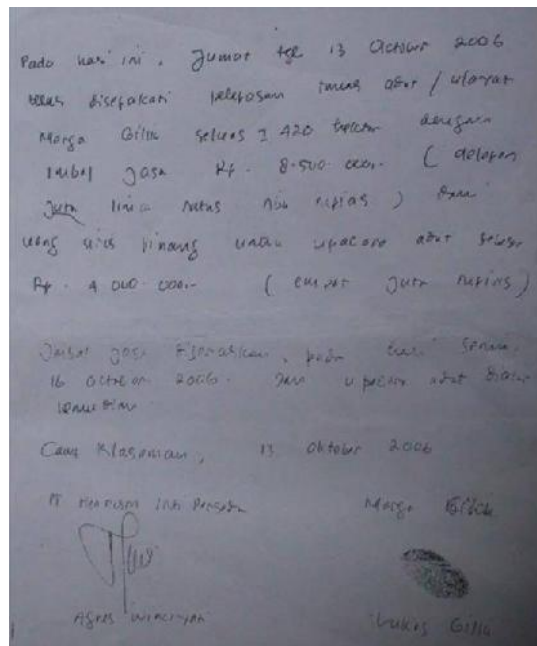 Pada hari ini, Jumat tgl 13 October 2006
telah disepakati pelepasan tanah adat / ulayat
Marga Gilik seluas ± 420 hektar dengan
imbal jasa Rp. 8.500.000.- ( delapan
juta lima ratus ribu rupiah ) dan
uang sirih pinang untuk upacara adat sebesar
Rp. 4.000.000.- ( empat juta rupiah )
Imbal jasa diserahkan pada hari Senin,
16 October 2006. dan upacara adat diatur
kemudian
Klasaman, 13 Oktober 2006
PT Henrison Inti Persada
Marga Gilik
Agnes
Gilik